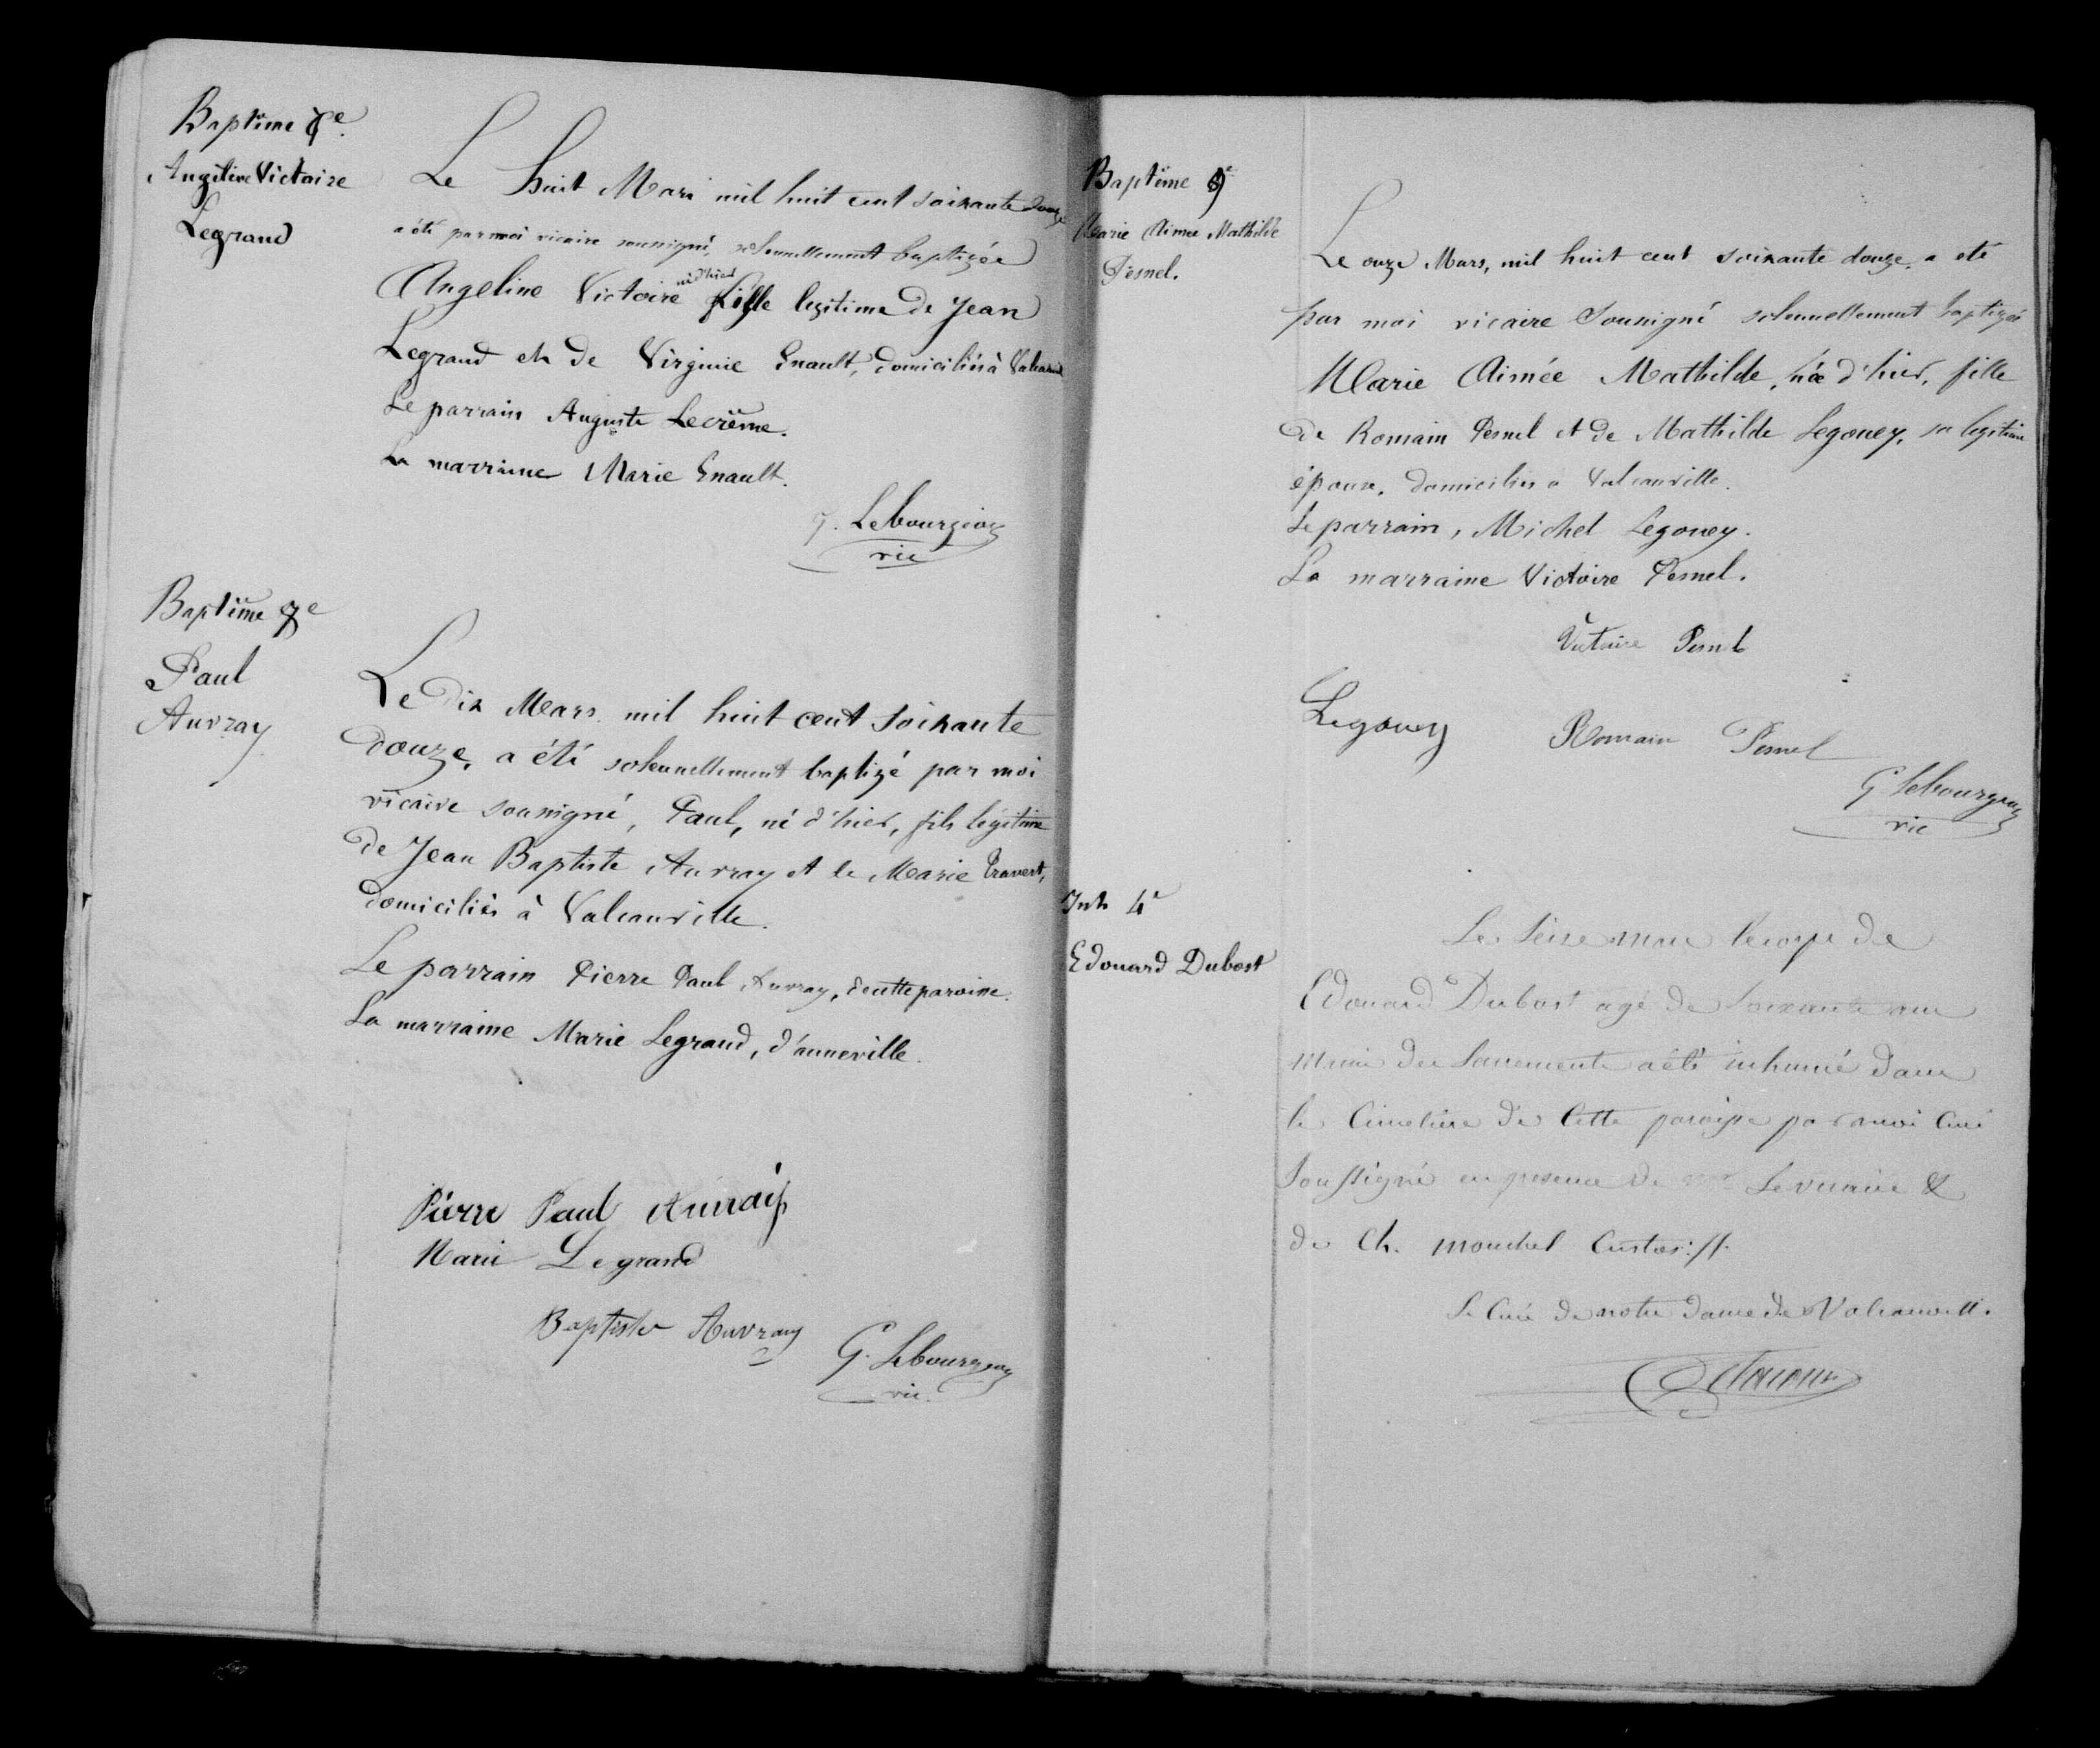 Baptême 7e
Angeline Victoire
Legrand
Le huit Mars mil huit cent soixante douze
a été par moi vicaire soussigné, solennellement baptizée
Angeline Victoire née d'hier fille legitime de Jean
Legrand et de Virginie Enault, domiciliés à Valcanville
Le parrain Auguste Lecrême.
La marraine Marie Enault.
G. Lebourgeois
vic
Baptême e
Paul
Auvray
Le Dix Mars mil huit cent soixante
douze, a été solennellement baptizé par moi
vicaire soussigné, Paul, né d'hier, fils légitime
de Jean Baptiste Auvray et de Marie Travert,
domiciliés à Valcanville.
Le parrain Pierre Paul Auvray, de cette paroisse.
La marraine Marie Legrand, d'anneville.
Pierre Paul Auvray
Marie Legrand
Baptiste Auvray
G. Lebourgeois
vic.
Baptême 9e
Marie Aimée Mathilde
Pesnel.
Le onze Mars, mil huit cent soixante douze, a été
par moi vicaire soussigné solennellement baptizée
Marie Aimée Mathilde, née d'hier, fille
de Romain Pesnel et de Mathilde Legoney, sa legitime
épouse, domiciliés a Valcanville.
Le parrain, Michel Legoney.
La marraine Victoire Pesnel.
Victoire Pesnel
Legoney Romain Pesnel
G Lebourgeois
vic
Inh 4e
Edouard Dubost
Le Seize mars le corps de
Edouard Dubost agé de soixante ans
muni des Sacrements a été inhumé dans
le Cimetière de Cette paroisse par moi Curé
Soussigné en presence de Le vicaire &
de Ch. Mouchel Custos: ff.
Le Curé de notre Dame de Valcanville.